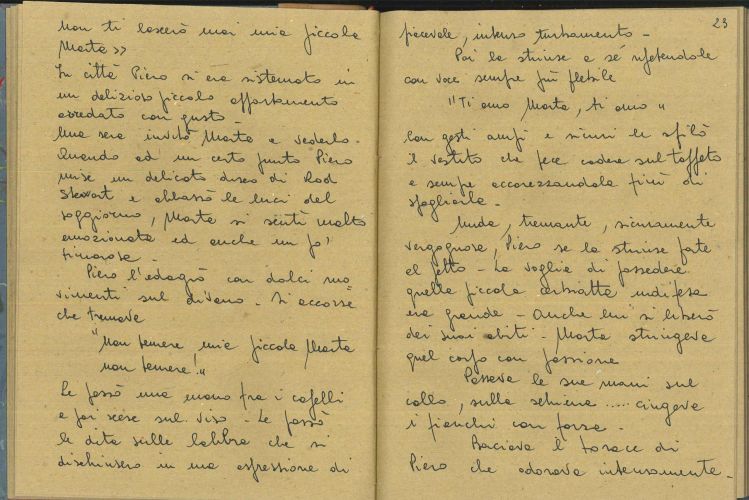 Non ti lascerò mai mia piccola
Marta >>
In città Piero si era sistemato in
un delizioso piccolo appartamento
arredato con gusto -
Una sera invitò Marta a vederlo.
Quando ad un certo punto Piero
mise un delicato disco di Rod
Stewart e abbassò le luci del
soggiorno, Marta si sentì molto
emozionata ed anche un po'
timorosa -
Piero l'adagiò con dolci mo
vimenti sul divano - Si accorse
che tremava
"Non temere mia piccola Marta
non temere!"
Le passò una mano fra i capelli
e poi scese sul viso - Le passò
le dita sulle labbra che si
dischiusero in una espressione di
23
piacevole, intenso turbamento -
Poi la strinse a sé ripetendole
con voce sempre più flebile
"Ti amo Marta, ti amo"
Con gesti ampi e sicuri le sfilò
il vestito che fece cadere sul tappeto
e sempre accarezzandola finì di
spogliarla -
Nuda, tremante, sicuramente
vergognosa, Piero se la strinse forte
al petto - La voglia di possedere
quella piccola cerbiatta indifesa
era grande - Anche lui si liberò
dei suoi abiti - Marta stringeva
quel corpo con passione
Passava le sue mani sul
collo, sulla schiena ..... cingeva
i fianchi con forza -
Baciava il torace di
Piero che odorava intensamente -